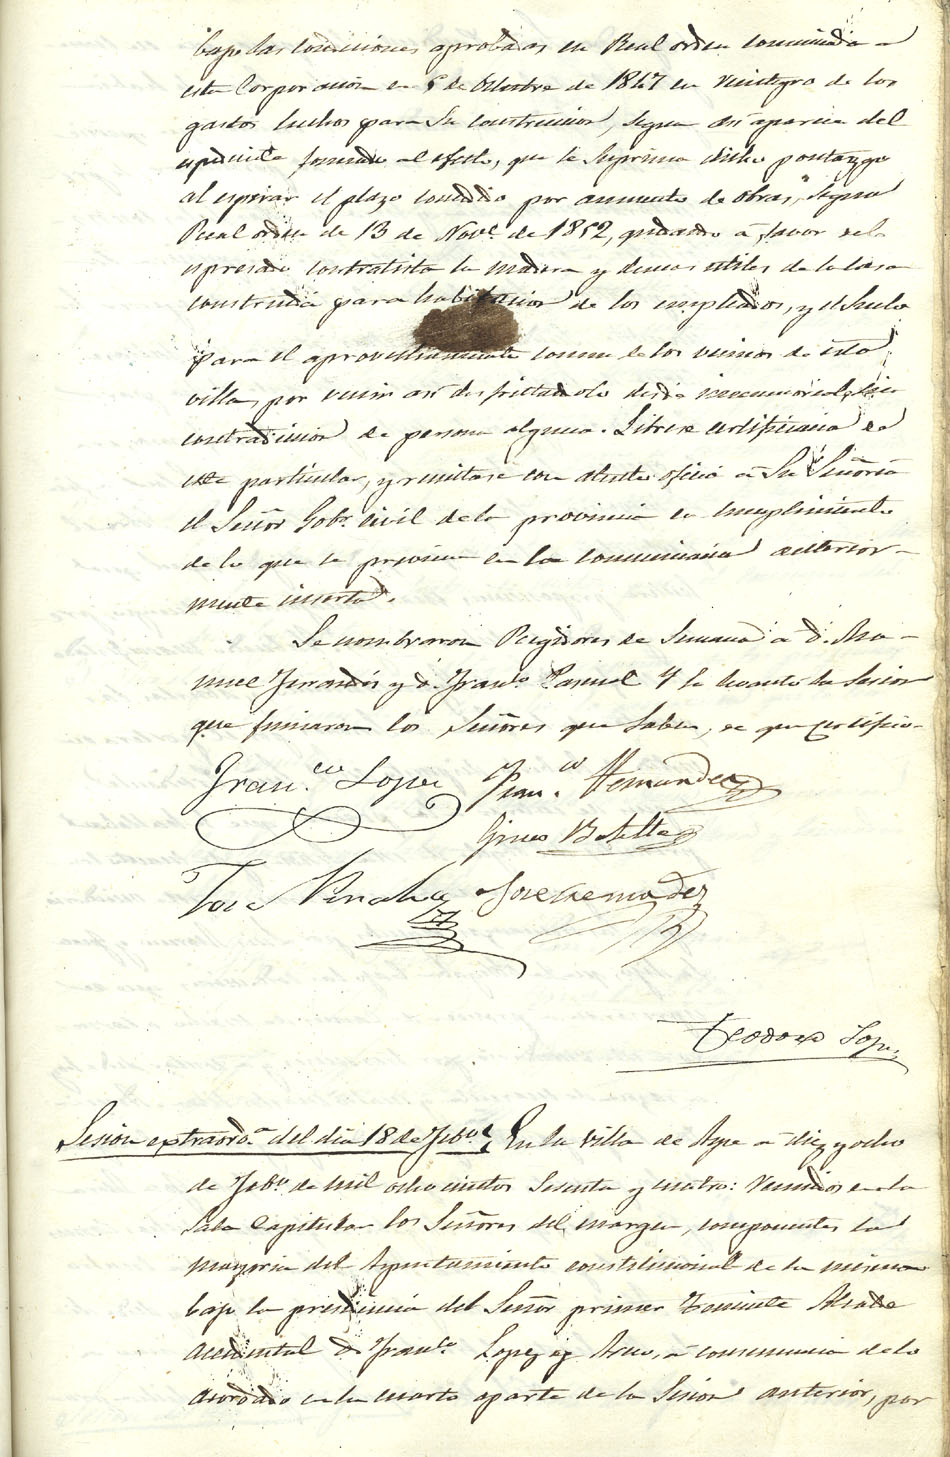 bajo las condiciones aprobadas en Real orden comunicada a
esta Corporacion en 5 de Octubre de 1847 en reintegro de los
gastos hechos para su construccion, segun asi aparece del
espediente formado al efecto, que se suprima dicho portazgo
al espirar el plazo concedido por aumento de obras, segun
Real orden de 13 de Nov.e de 1852, quedando á favor del
espresado contratista la madera y demas utiles de la casa
construida para habitacion de los empleados, y el suelo
para el aprovechamiento comun de los vecinos de esta
villa, por venir asi disfrutandolo desde inmemorial, sin
contradicion de persona alguna. Librese certificacion de
este particular, y remitase con atento oficio á Su Señoria
el Señor Gobr. Civil de la provincia en cumplimiento
de lo que se previene en la comunicacion anterior-
mente inserta.
Se nombraron Regidores de Semana á D. Ma-
nuel y D. Fran.co Pascual Y se levantó la sesion
que firmaron los Señores que saben, de que certifico.
Fran.co Lopez Fran.co Hernandez
Gines Botella
Jose Peralta Jose Hernandez
Teodoro Lopez
Sesion extraord.a del dia 18 de Feb.o En la Villa de Aspe á diez y ocho
de Feb.o de mil ochocientos sesenta y cuatro: Reunidos en la
Sala Capitular los Señores del margen, componentes la
mayoria del Ayuntamiento constitucional de la misma
bajo la presidencia del Señor primer Teniente Alcalde
accidental D. Fran.co Lopez y, á consecuencia de lo
acordado en la cuarta aparte de la Sesion anterior, por